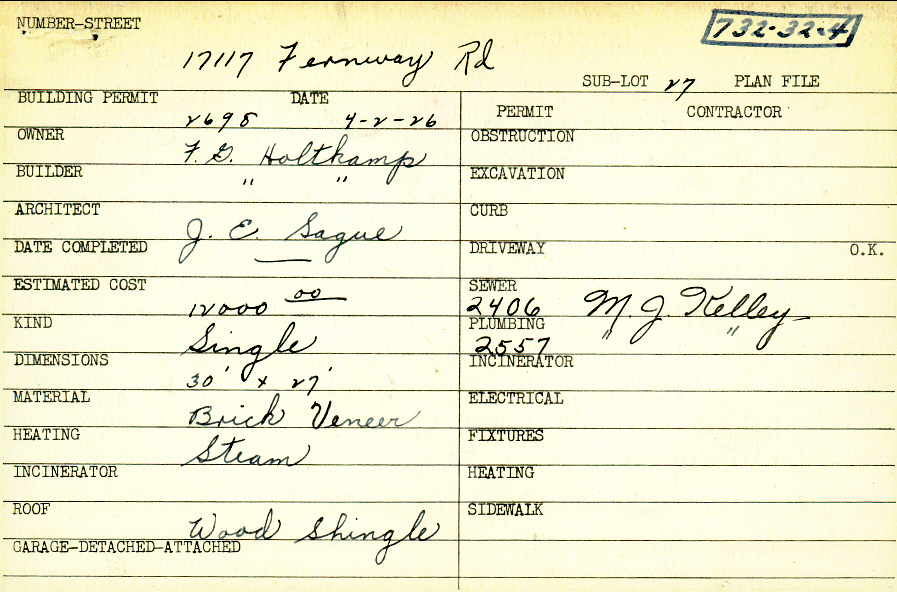 NUMBER-STREET
732-32-4
17117 Fernway Rd
SUB-LOT 27 PLAN FILE
BUILDING PERMIT DATE
2698 4-2-26
OWNER
F. G. Holtkamp
BUILDER
" "
ARCHITECT
J. E. Sague
DATE COMPLETED
—
ESTIMATED COST
12000 00
KIND
Single
DIMENSIONS
30' x 27'
MATERIAL
Brick Veneer
HEATING
Steam
INCINERATOR
ROOF
Wood Shingle
GARAGE-DETACHED-ATTACHED
PERMIT CONTRACTOR
OBSTRUCTION
EXCAVATION
CURB
DRIVEWAY O.K.
SEWER
2406 M. J. Kelley
PLUMBING
2557 " "
INCINERATOR
ELECTRICAL
FIXTURES
HEATING
SIDEWALK